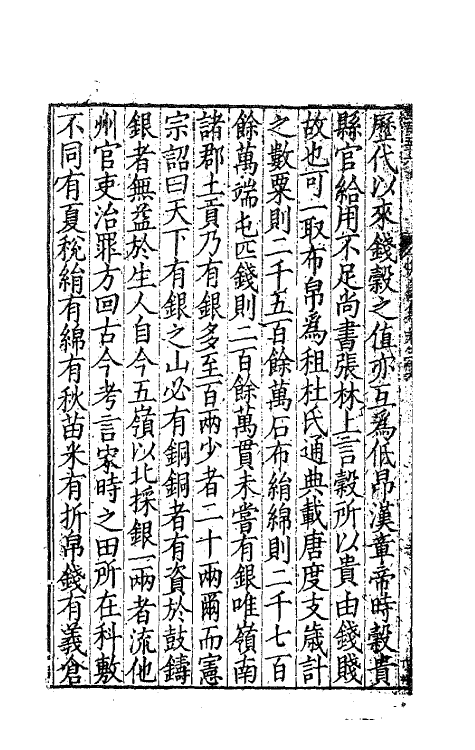 歷代以來錢穀之值亦互爲低昂漢章帝時穀貴
縣官給用不足尚書張林上言穀所以貴由錢賤
故也可一取布帛爲租杜氏通典載唐度支歲計
之數粟則二千五百餘萬石布絹綿則二千七百
餘萬端屯匹錢則二百餘萬貫未嘗有銀唯嶺南
諸郡土貢乃有銀多至一百兩少者二十兩爾而憲
宗詔曰天下有銀之山必有銅銅者有資於鼓鑄
銀者無益於生人自今五嶺以北採銀一兩者流他
州官吏治罪方回古今考言家時之田所在科敷
不同有夏稅絹有綿有秋苗米有折帛錢有義倉